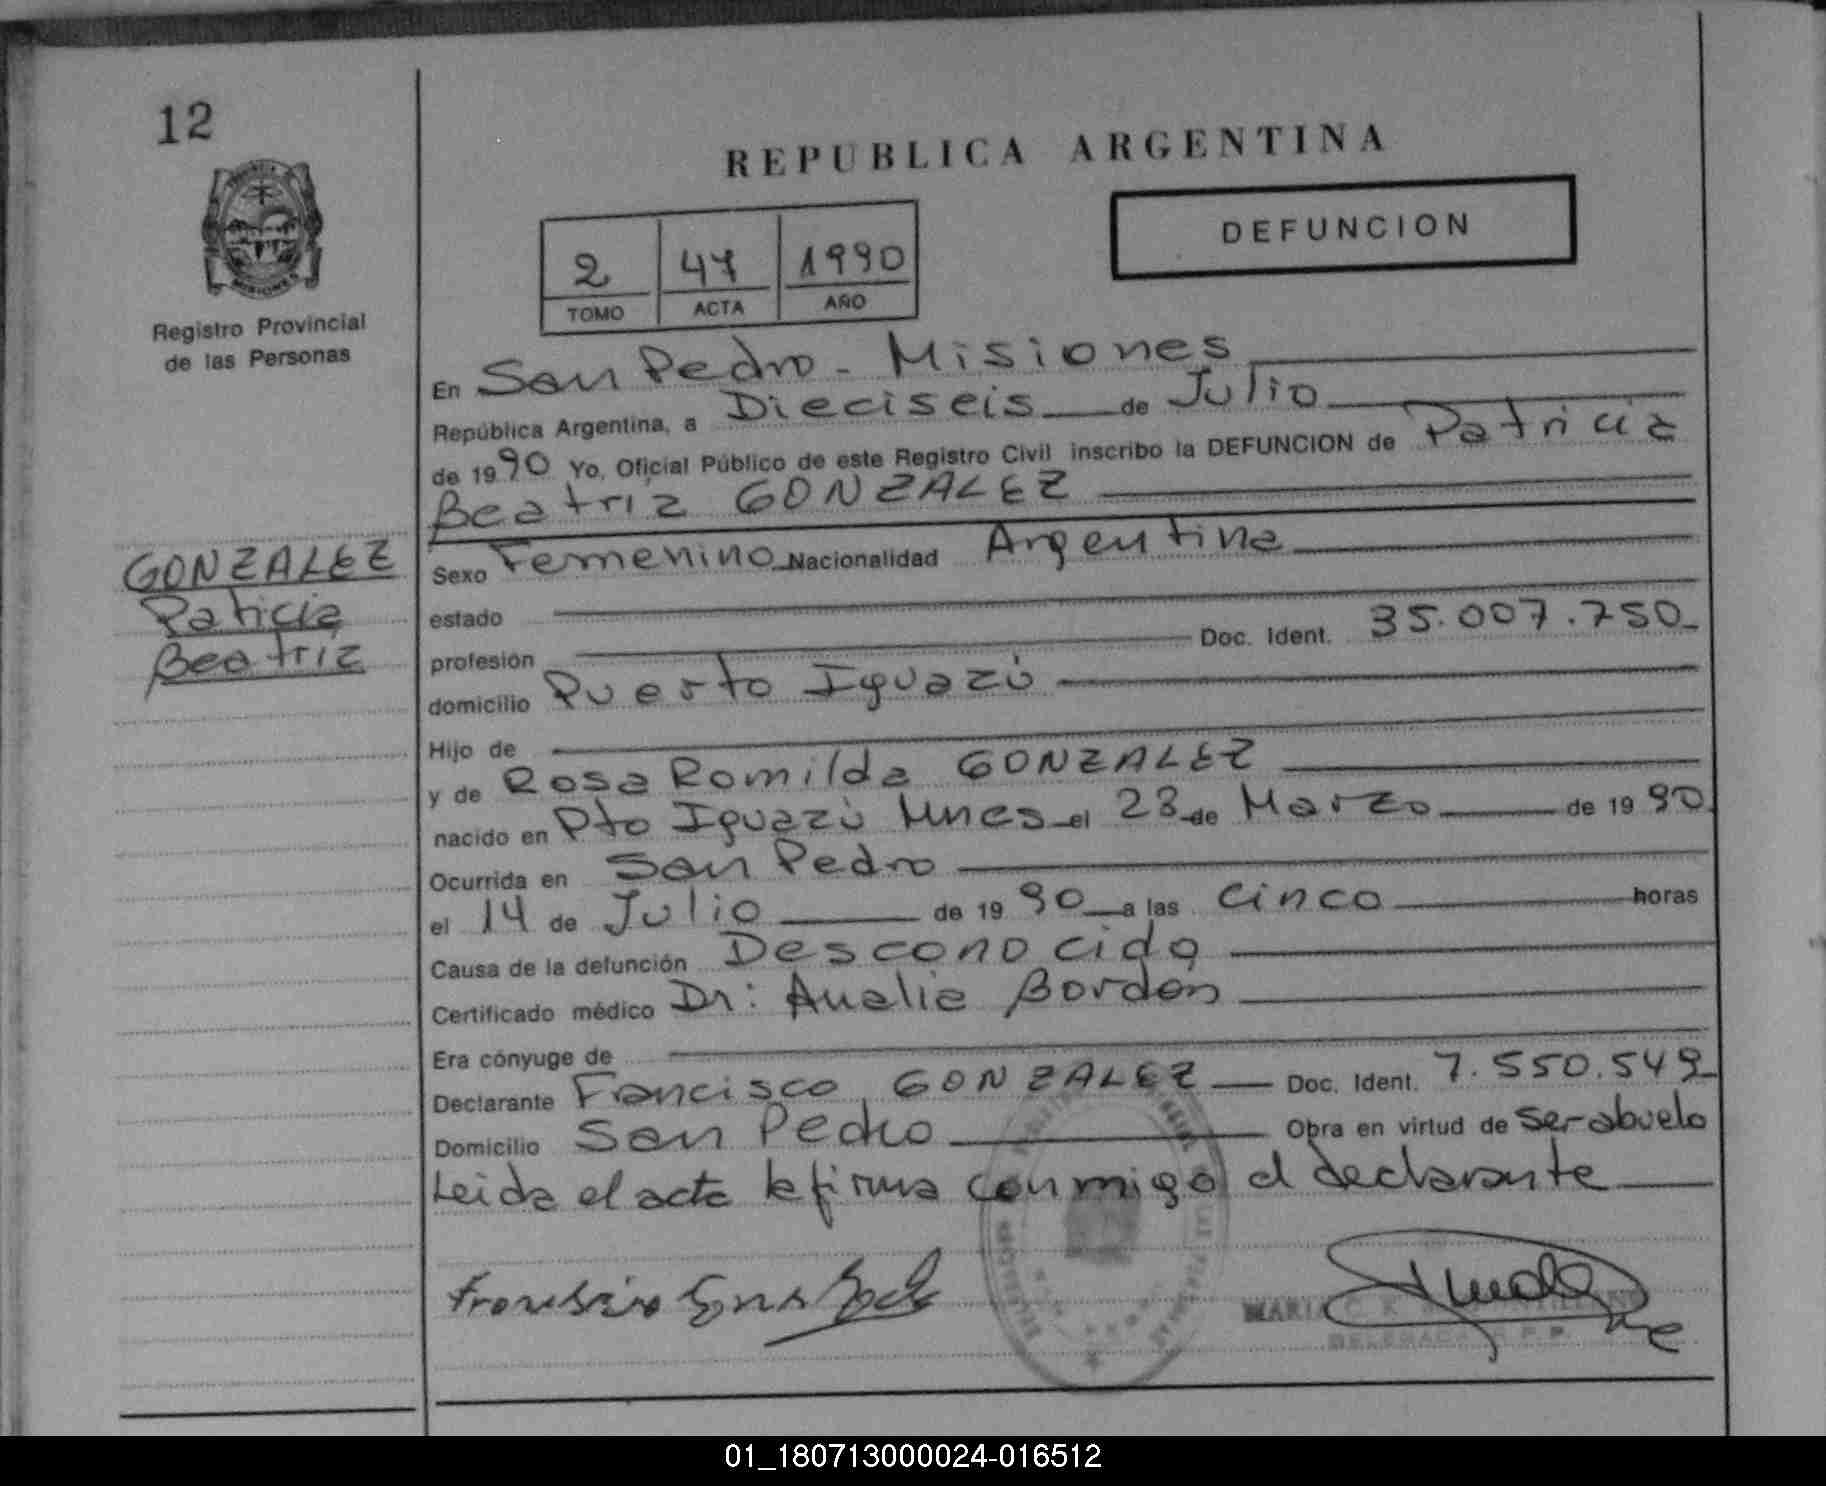 12
REPUBLICA ARGENTINA
DEFUNCION
2 47 1990
TOMO ACTA AÑO
MISIONES
Registro Provincial
de las Personas
En San Pedro - Misiones
República Argentina, a Dieciseis de Julio
de 1990 Yo, Oficial Público de este Registro Civil inscribo la DEFUNCION de Patricia
Beatriz GONZALEZ
GONZALEZ
Paticia
Beatriz
Sexo Femenino Nacionalidad Argentina
estado
profesión Doc. Ident. 35.007.750
domicilio Puerto Iguazú
Hijo de
y de Rosa Romilda GONZALEZ
nacido en Pto Iguazú Mnes el 28 de Marzo de 1990
Ocurrida en San Pedro
el 14 de Julio de 1990 a las Cinco horas
Causa de la defunción Desconocida
Certificado médico Dr: Analia Bordon
Era cónyuge de
Declarante Francisco GONZALEZ Doc. Ident. 7.550.549
Domicilio San Pedro Obra en virtud de ser abuelo
Leida el acta la firma conmigo el declarante
MARIA C. K.
DELEGADA R.P.P.
01_180713000024-016512